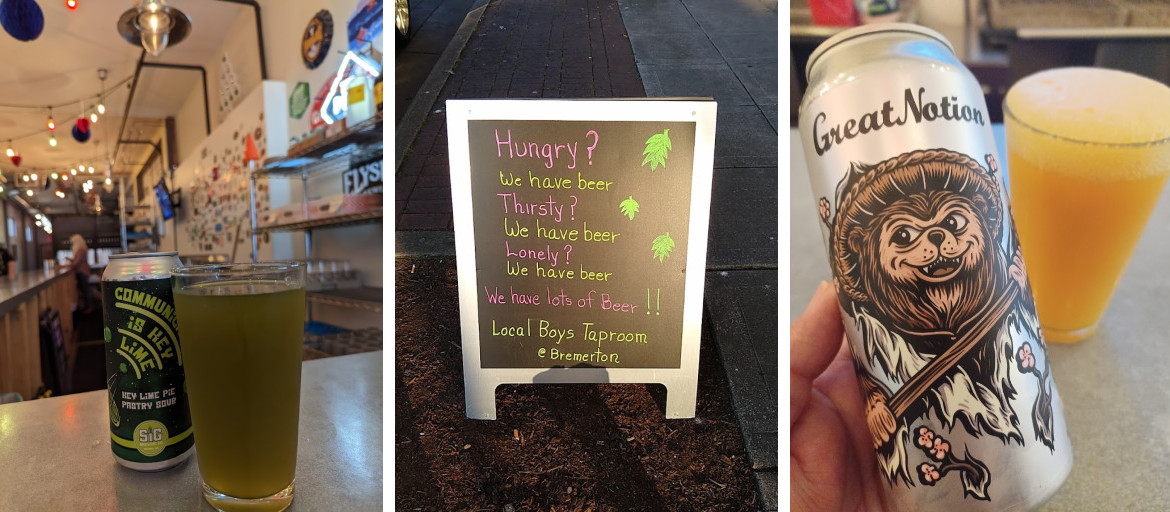 ELYS
COMMUN
iS KEY
LiME
KEY LiME PiE
PASTRY SOUR
SiG
Hungry?
We have beer
Thirsty?
We have beer
Lonely?
We have beer
We have lots of Beer !!
Local Boys Taproom
@ Bremerton
Great Notion